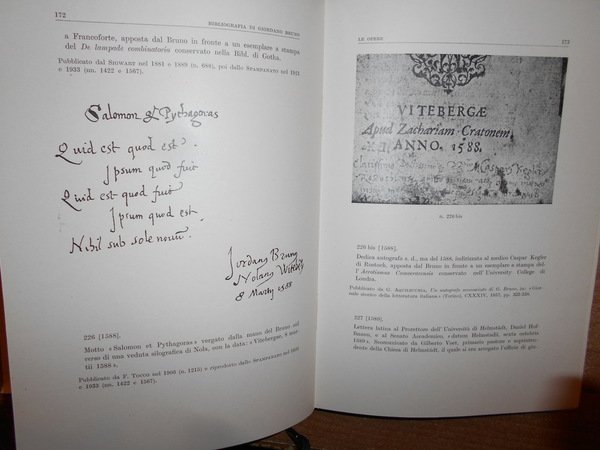 172
BIBLIOGRAFIA DI GIORDANO BRUNO
a Francoforte, apposta dal Bruno in fronte a un esemplare a stampa
del De lampade combinatoria conservato nella Bibl. di Gotha.
Pubblicato dal SIGWART nel 1881 e 1889 (n. 688), poi dallo SPAMPANATO nel 1921
e 1933 (nn. 1422 e 1567).
Salomon et Pythagoras
Quid est quod est?
Ipsum quod fuit
Quid est quod fuit
Ipsum quod est.
Nihil sub sole novum.
Jordanus Brunus
Nolanus
8 Martij 1588
226 [1588].
Motto «Salomon et Pythagoras» vergato dalla mano del Bruno sul
verso di una veduta silografica di Nola, con la data: «Vitebergae, 8 mar-
tii 1588».
Pubblicato da F. TOCCO nel 1906 (n. 1215) e riprodotto dallo SPAMPANATO nel 1933
e 1933 (nn. 1422 e 1567).
LE OPERE
173
VITEBERGÆ
Apud Zachariam Cratonem
ANNO. 1588.
n. 226 bis
226 bis [1588].
Dedica autografa s. d., ma del 1588, indirizzata al medico Caspar Kegler
di Rostock, apposta dal Bruno in fronte a un esemplare a stampa
del l'Acrotismus Camoeracensis conservato nell'University College di
Londra.
Pubblicato da G. AQUILECCHIA, Un autografo sconosciuto di G. Bruno, in: «Gior-
nale storico della letteratura italiana» (Torino), CXXXIV, 1957, pp. 333-338.
227 [1589].
Lettera latina al Prorettore dell'Università di Helmstädt, Daniel Hof-
mann, e al Senato Accademico,
1589». Scomunicato da Gilberto Voet, primario pastore e soprinten-
dente della Chiesa di Helmstädt, il quale si era arrogato l'ufficio di giu-